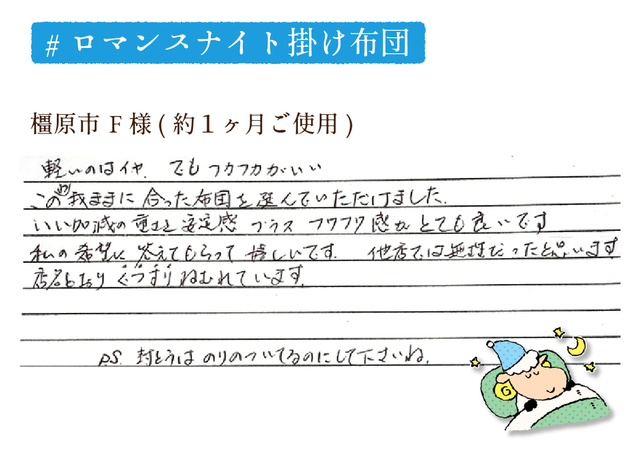 # ロマンスナイト掛け布団
橿原市 F 様 ( 約１ヶ月ご使用 )
軽いのはイヤ. でもフカフカがいい
この我ままに合った布団を選んでいただけました.
いい加減の重さと安定感 プラス フワフワ感が とても良いです
私の希望に答えてもらって嬉しいです. 他店では無理だったと思います
店名どおり ぐっすりねむれています.
P.S. 封とうは のりのついてるのにして下さいね.